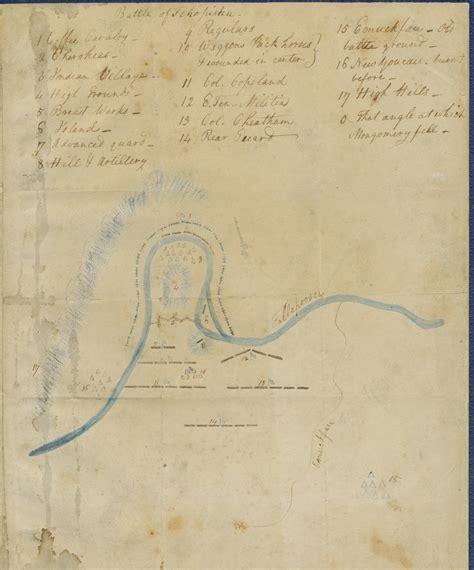 Battle of Tehopiska.
1 Coffee Cavalry
2 Cherokees
3 Indian Village
4 High Grounds
5 Breast Works
6 Island
7 Advanced guard
8 Hill & Artillery
9 Regulars
10 Waggons Pack horses & wounded in center
11 Col. Copeland
12 E. Ten. Militia
13 Col. Cheatham
14 Rear Guard
15 Emuckfau Old battle ground
16 New Youcau burnt before
17 High Hills
0 That angle at which Montgomery fell
Tallapoosa
Emuckfau
17
15
15